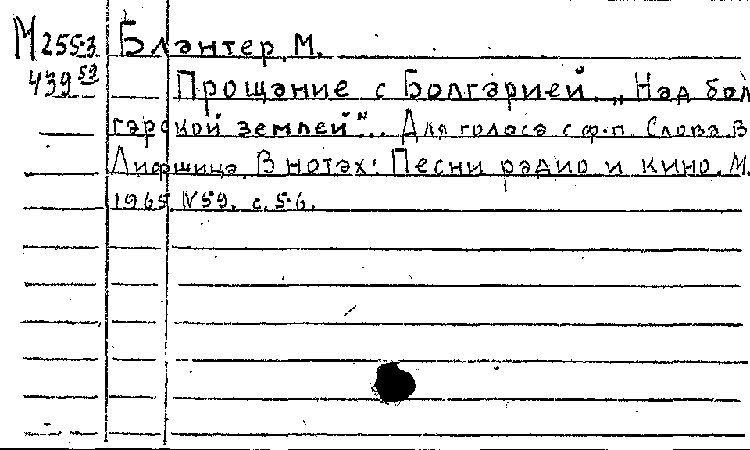 М 255-3 Блантер, М.
439 59 Прощание с Болгарией. „Над бол
гарской землей". Для голоса с ф.-п. Слова В.
Лифшица. В нотах: Песни радио и кино. М.
1965, № 59. с. 5-6.